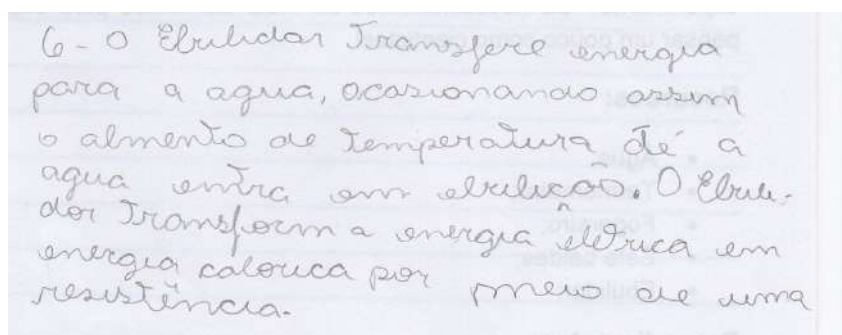 6 - O Ebulidor Transfere energia
para a agua, ocasionando assim
o almento de temperatura até a
agua entra em ebulicão. O Ebuli-
dor Transform a energia elétrica em
energia calorica por meio de uma
resistência.